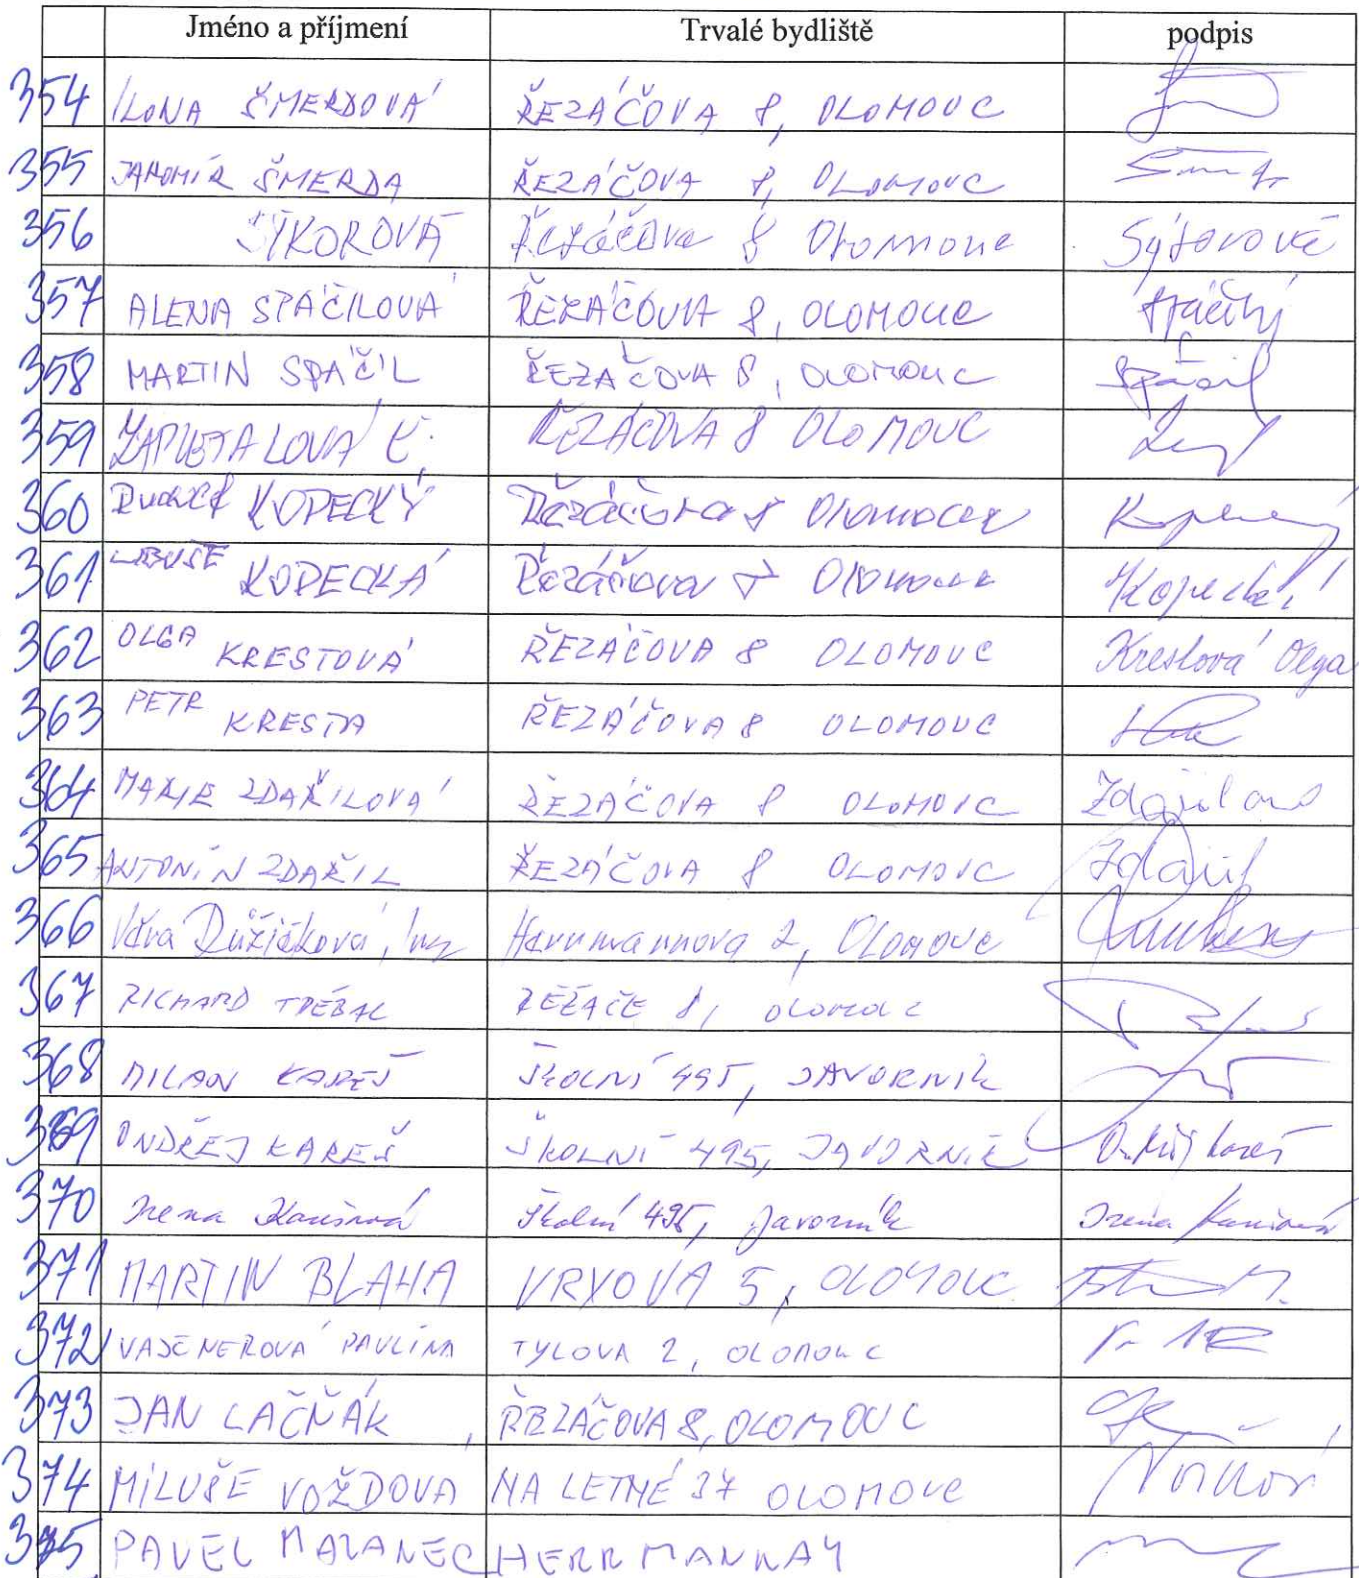 Jméno a příjmení Trvalé bydliště podpis
354 ILONA ŠMERDOVÁ ŘEZÁČOVA 8, OLOMOUC
355 JAROMÍR ŠMERDA ŘEZÁČOVA 8, OLOMOUC
356 SÝKOROVÁ Řezáčova 8 Olomouc Sýkorová
357 ALENA SPÁČILOVÁ ŘEZÁČOVA 8, OLOMOUC
358 MARTIN SPÁČIL ŘEZÁČOVA 8, OLOMOUC Spáčil
359 ZAPLETALOVÁ ŘEZÁČOVA 8 OLOMOUC
360 Rudolf KOPECKÝ Řezáčova 8 Olomouc Kopecký
361 LIBUŠE KOPECKÁ Řezáčova Olomouc Kopecká
362 OLGA KRESTOVÁ ŘEZÁČOVA 8 OLOMOUC Krestová Olga
363 PETR KRESTA ŘEZÁČOVA 8 OLOMOUC
364 MARIE ZDAŘILOVÁ ŘEZÁČOVA 8 OLOMOUC
365 ANTONÍN ZDAŘIL ŘEZÁČOVA 8 OLOMOUC Zdařil
366 Věra Růžičková, Ing Herrmannova 2, OLOMOUC
367 RICHARD ŘEZÁČE 8, OLOMOUC
368 MILAN KAREŠ ŠKOLNÍ 495, JAVORNÍK
369 ONDŘEJ KAREŠ ŠKOLNÍ 495, JAVORNÍK Ondřej Kareš
370 Irena Karešová Školní 495, Javorník Irena Karešová
371 MARTIN BLAHA 5, OLOMOUC
372 PAVLÍNA TYLOVA 2, OLOMOUC
373 JAN LAČŇÁK, ŘEZÁČOVA 8, OLOMOUC
374 MILUŠE VOŽDOVA NA LETNÉ 37 OLOMOUC
375 PAVEL MAZANEC